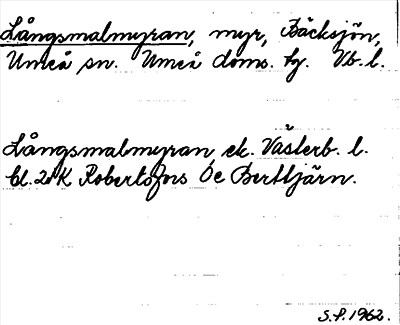 Långsmalmyran, myr, Bäcksjön,
Umeå sn. Umeå doms. tg. Vb. l.
Långsmalmyran, ek. Västerb. l.
bl. 20 K Robertsfors 0e Berttjärn.
S.P. 1962.